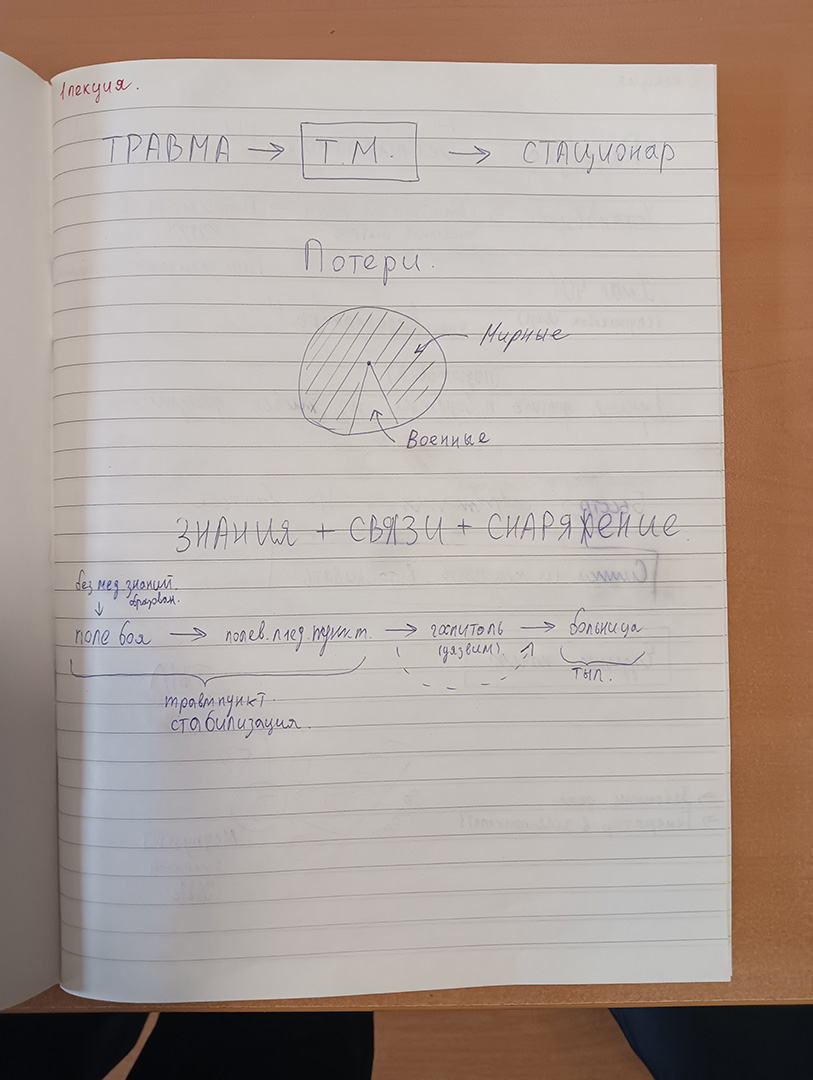 1 лекция.
ТРАВМА → Т.М. → СТАЦИОНАР
Потери.
Мирные
Военные
ЗНАНИЯ + СВЯЗИ + СНАРЯЖЕНИЕ.
без мед знаний.
образован.
поле боя → полев. мед. пункт. → госпиталь → больница
(уязвим)
тыл.
травмпункт.
стабилизация.